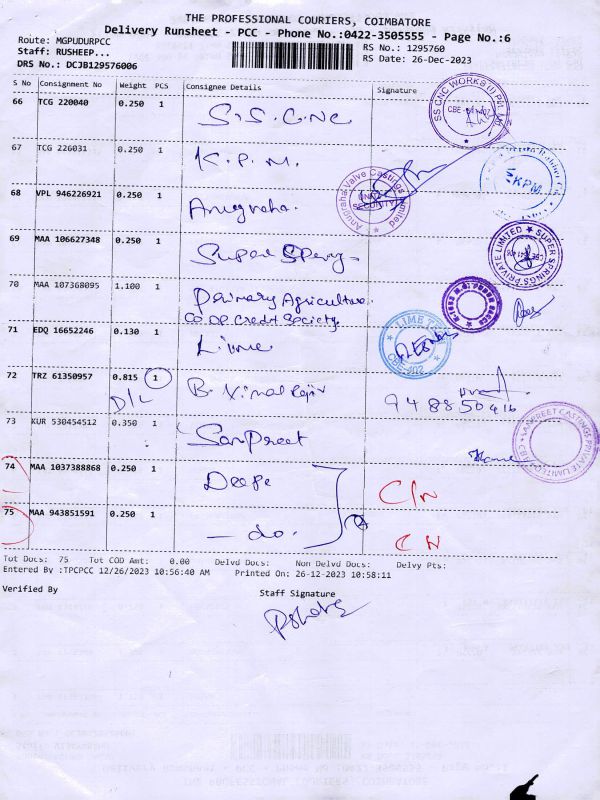 THE PROFESSIONAL COURIERS, COIMBATORE
Delivery Runsheet - PCC - Phone No.:0422-3505555 - Page No.:6
Route: MGPUDURPCC
Staff: RUSHEEP...
DRS No.: DCJB129576006
RS No.: 1295760
RS Date: 26-Dec-2023
S No Consignment No Weight PCS Consignee Details Signature
66 TCG 220040 0.250 1 S.S.C.NC
SS CNC WORKS (I) PVT LTD
67 TCG 226031 0.250 1 K.P.M.
KPM
68 VPL 946226921 0.250 1 Anugraha.
Anugraha Valve Castings Limited
SECURITY
69 MAA 106627348 0.250 1 Super Spery-
SUPER SPRINGS PRIVATE LIMITED
70 MAA 107368095 1.100 1 Primary Agriculture.
CO.OP Credit Society.
71 EDQ 16652246 0.130 1 Lime
LIME
CBE-402
72 TRZ 61350957 0.815 1 B. Vimal Rajiv
D/L
948850416
73 KUR 530454512 0.350 1 SanPreet
SANPREET CASTINGS PRIVATE LIMITED
74 MAA 1037388868 0.250 1 Deepe C/N
75 MAA 943851591 0.250 1 — do. CN
Tot Docs: 75 Tot COD Amt: 0.00 Delvd Docs: Non Delvd Docs: Delvy Pts:
Entered By :TPCPCC 12/26/2023 10:56:40 AM Printed On: 26-12-2023 10:58:11
Verified By Staff Signature